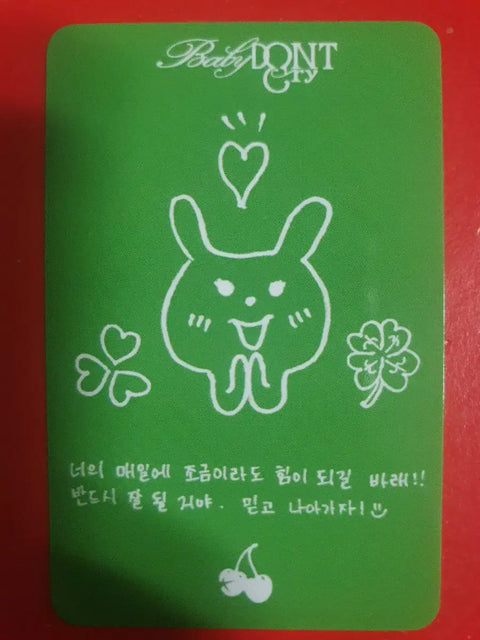 Baby DONT Cry
너의 매일에 조금이라도 힘이 되길 바래!!
반드시 잘 될 거야. 믿고 나아가자!